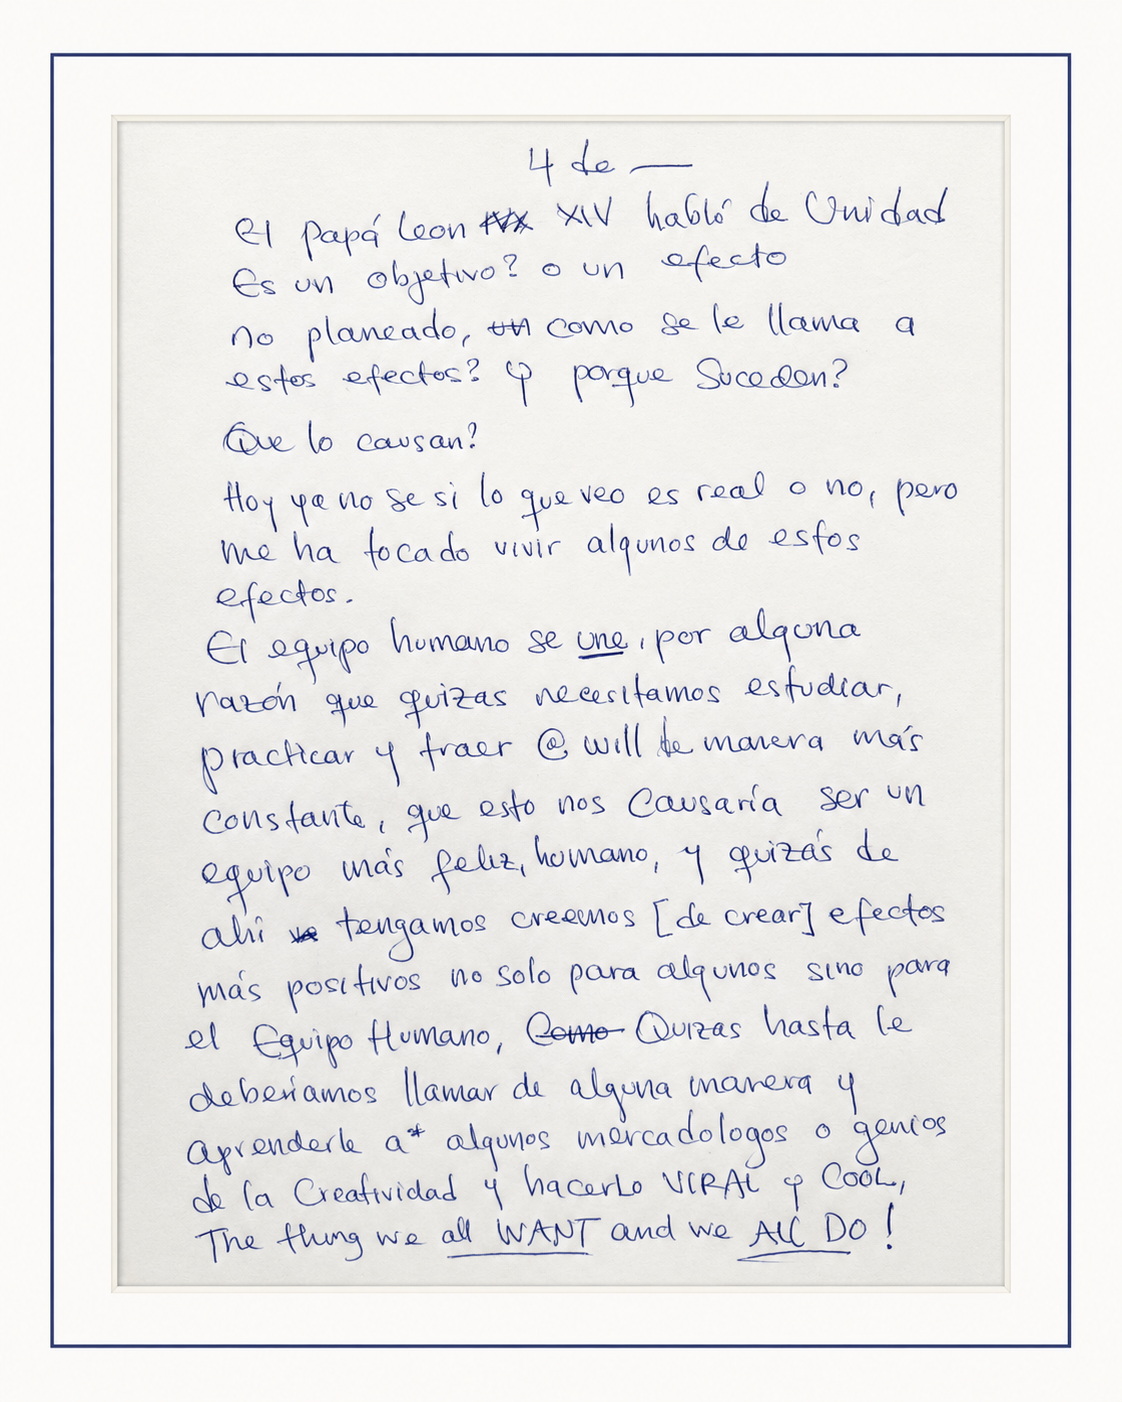 4 de —
El papá Leon XIV habló de Unidad
Es un objetivo? o un efecto
no planeado, un como se le llama a
estos efectos? y porque Suceden?
Que lo causan?
Hoy ya no se si lo que veo es real o no, pero
me ha tocado vivir algunos de estos
efectos.
El equipo humano se une, por alguna
razón que quizas necesitamos estudiar,
practicar y traer @ will de manera más
constante, que esto nos Causaría ser un
equipo más feliz, humano, y quizás de
ahí tengamos creemos [de crear] efectos
más positivos no solo para algunos sino para
el Equipo Humano, Como Quizas hasta le
deberiamos llamar de alguna manera y
aprenderle a* algunos mercadologos o genios
de la Creatividad y hacerlo VIRAL y COOL,
The thing we all WANT and we ALL DO!